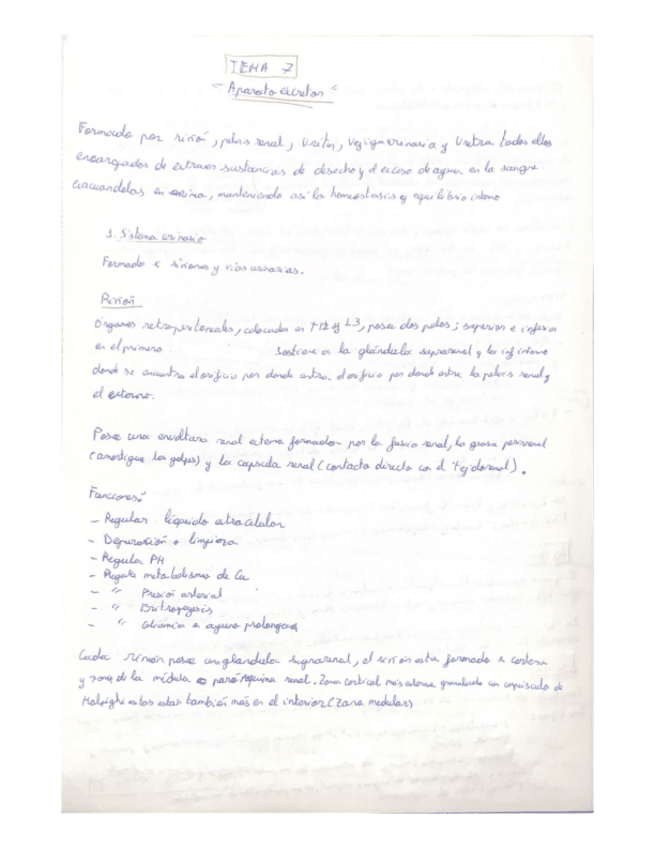 TEMA 7
"Aparato excretor"
Formado por riñón, pelvis renal, Uréter, Vejiga urinaria y Uretra todos ellos
encargados de extraer sustancias de desecho y el exceso de agua en la sangre
evacuandolas en orina, manteniendo así la homeostasis y equilibrio interno
1. Sistema urinario
Formado x riñones y vías urinarias.
Riñón
Órganos retroperitoneales, colocados en T12 y L3, posee dos polos; superior e inferior
en el primero sostiene a la glándula suprarenal y la inferior
donde se encuentra el orificio por donde entra el orificio por donde entra la pelvis renal y
el
Posee una envoltura renal externa formada por la fascia renal, la grasa perirrenal
(amortigua los golpes) y la capsula renal (contacto directo con el tejido renal).
Funciones:
- Regular líquido extracelular
- Depuración o limpieza
- Regula PH
- Regula metabolismo de Ca
- " Presión arterial
- " Eritropoyesis
- " Glucemia a ayuno prolongado
Cada riñón posee una glandula suprarenal, el riñón esta formado x corteza
y zona de la médula parénquima renal. Zona cortical más externa granulado con corpúsculo de
Malpighi estos estan también más en el interior (zona medular)